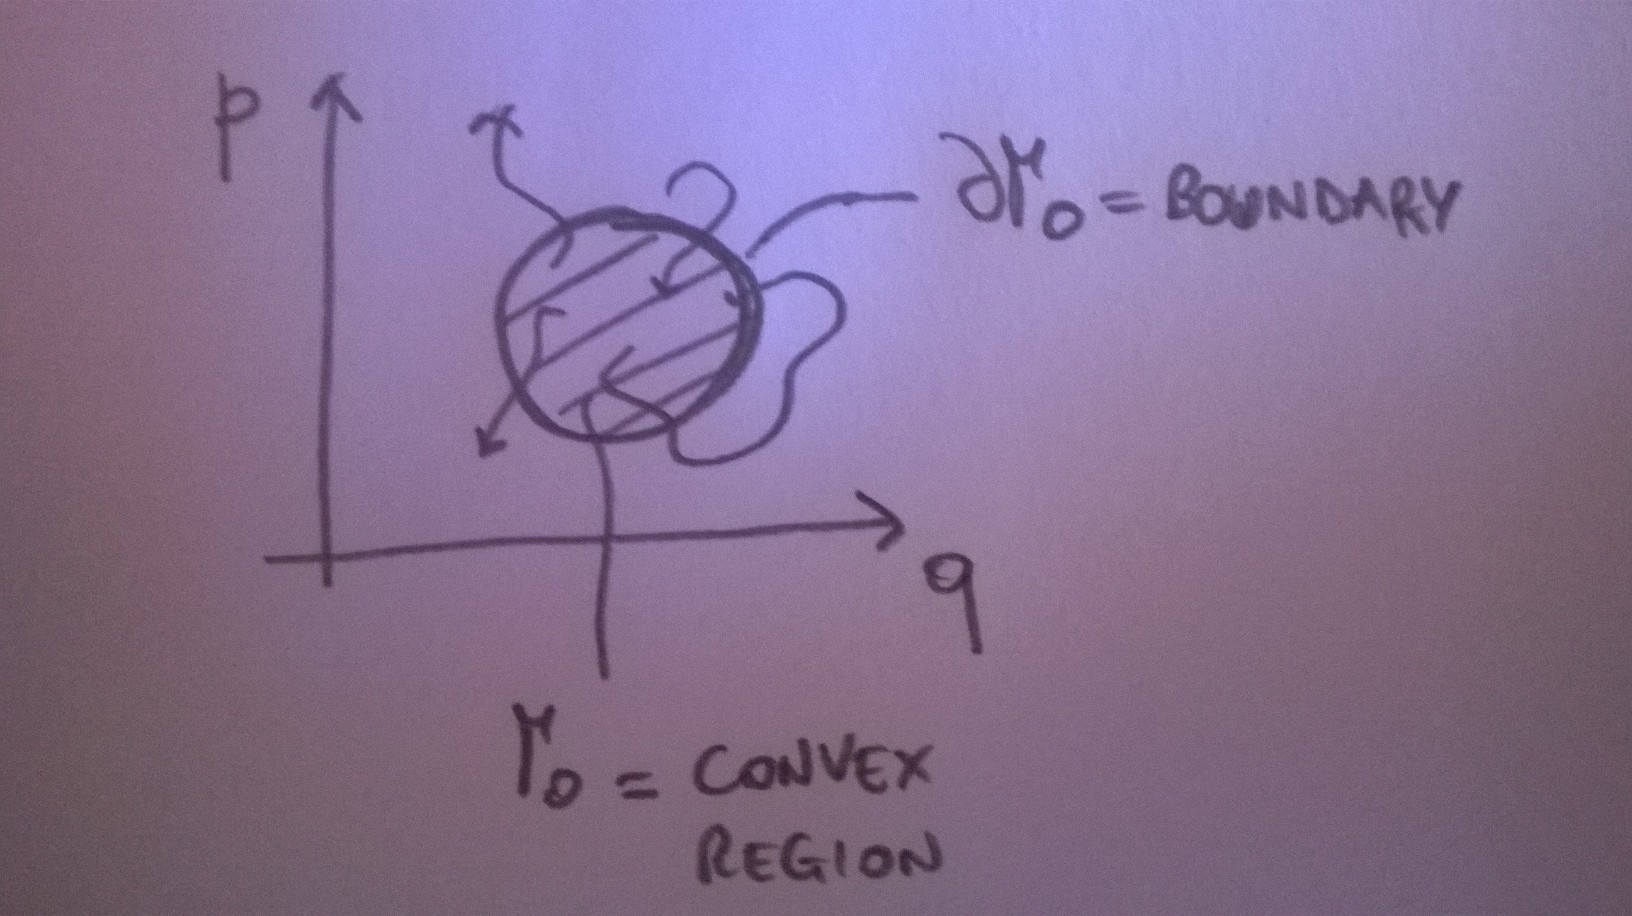 p
∂Γ₀ = BOUNDARY
q
Γ₀ = CONVEX
REGION